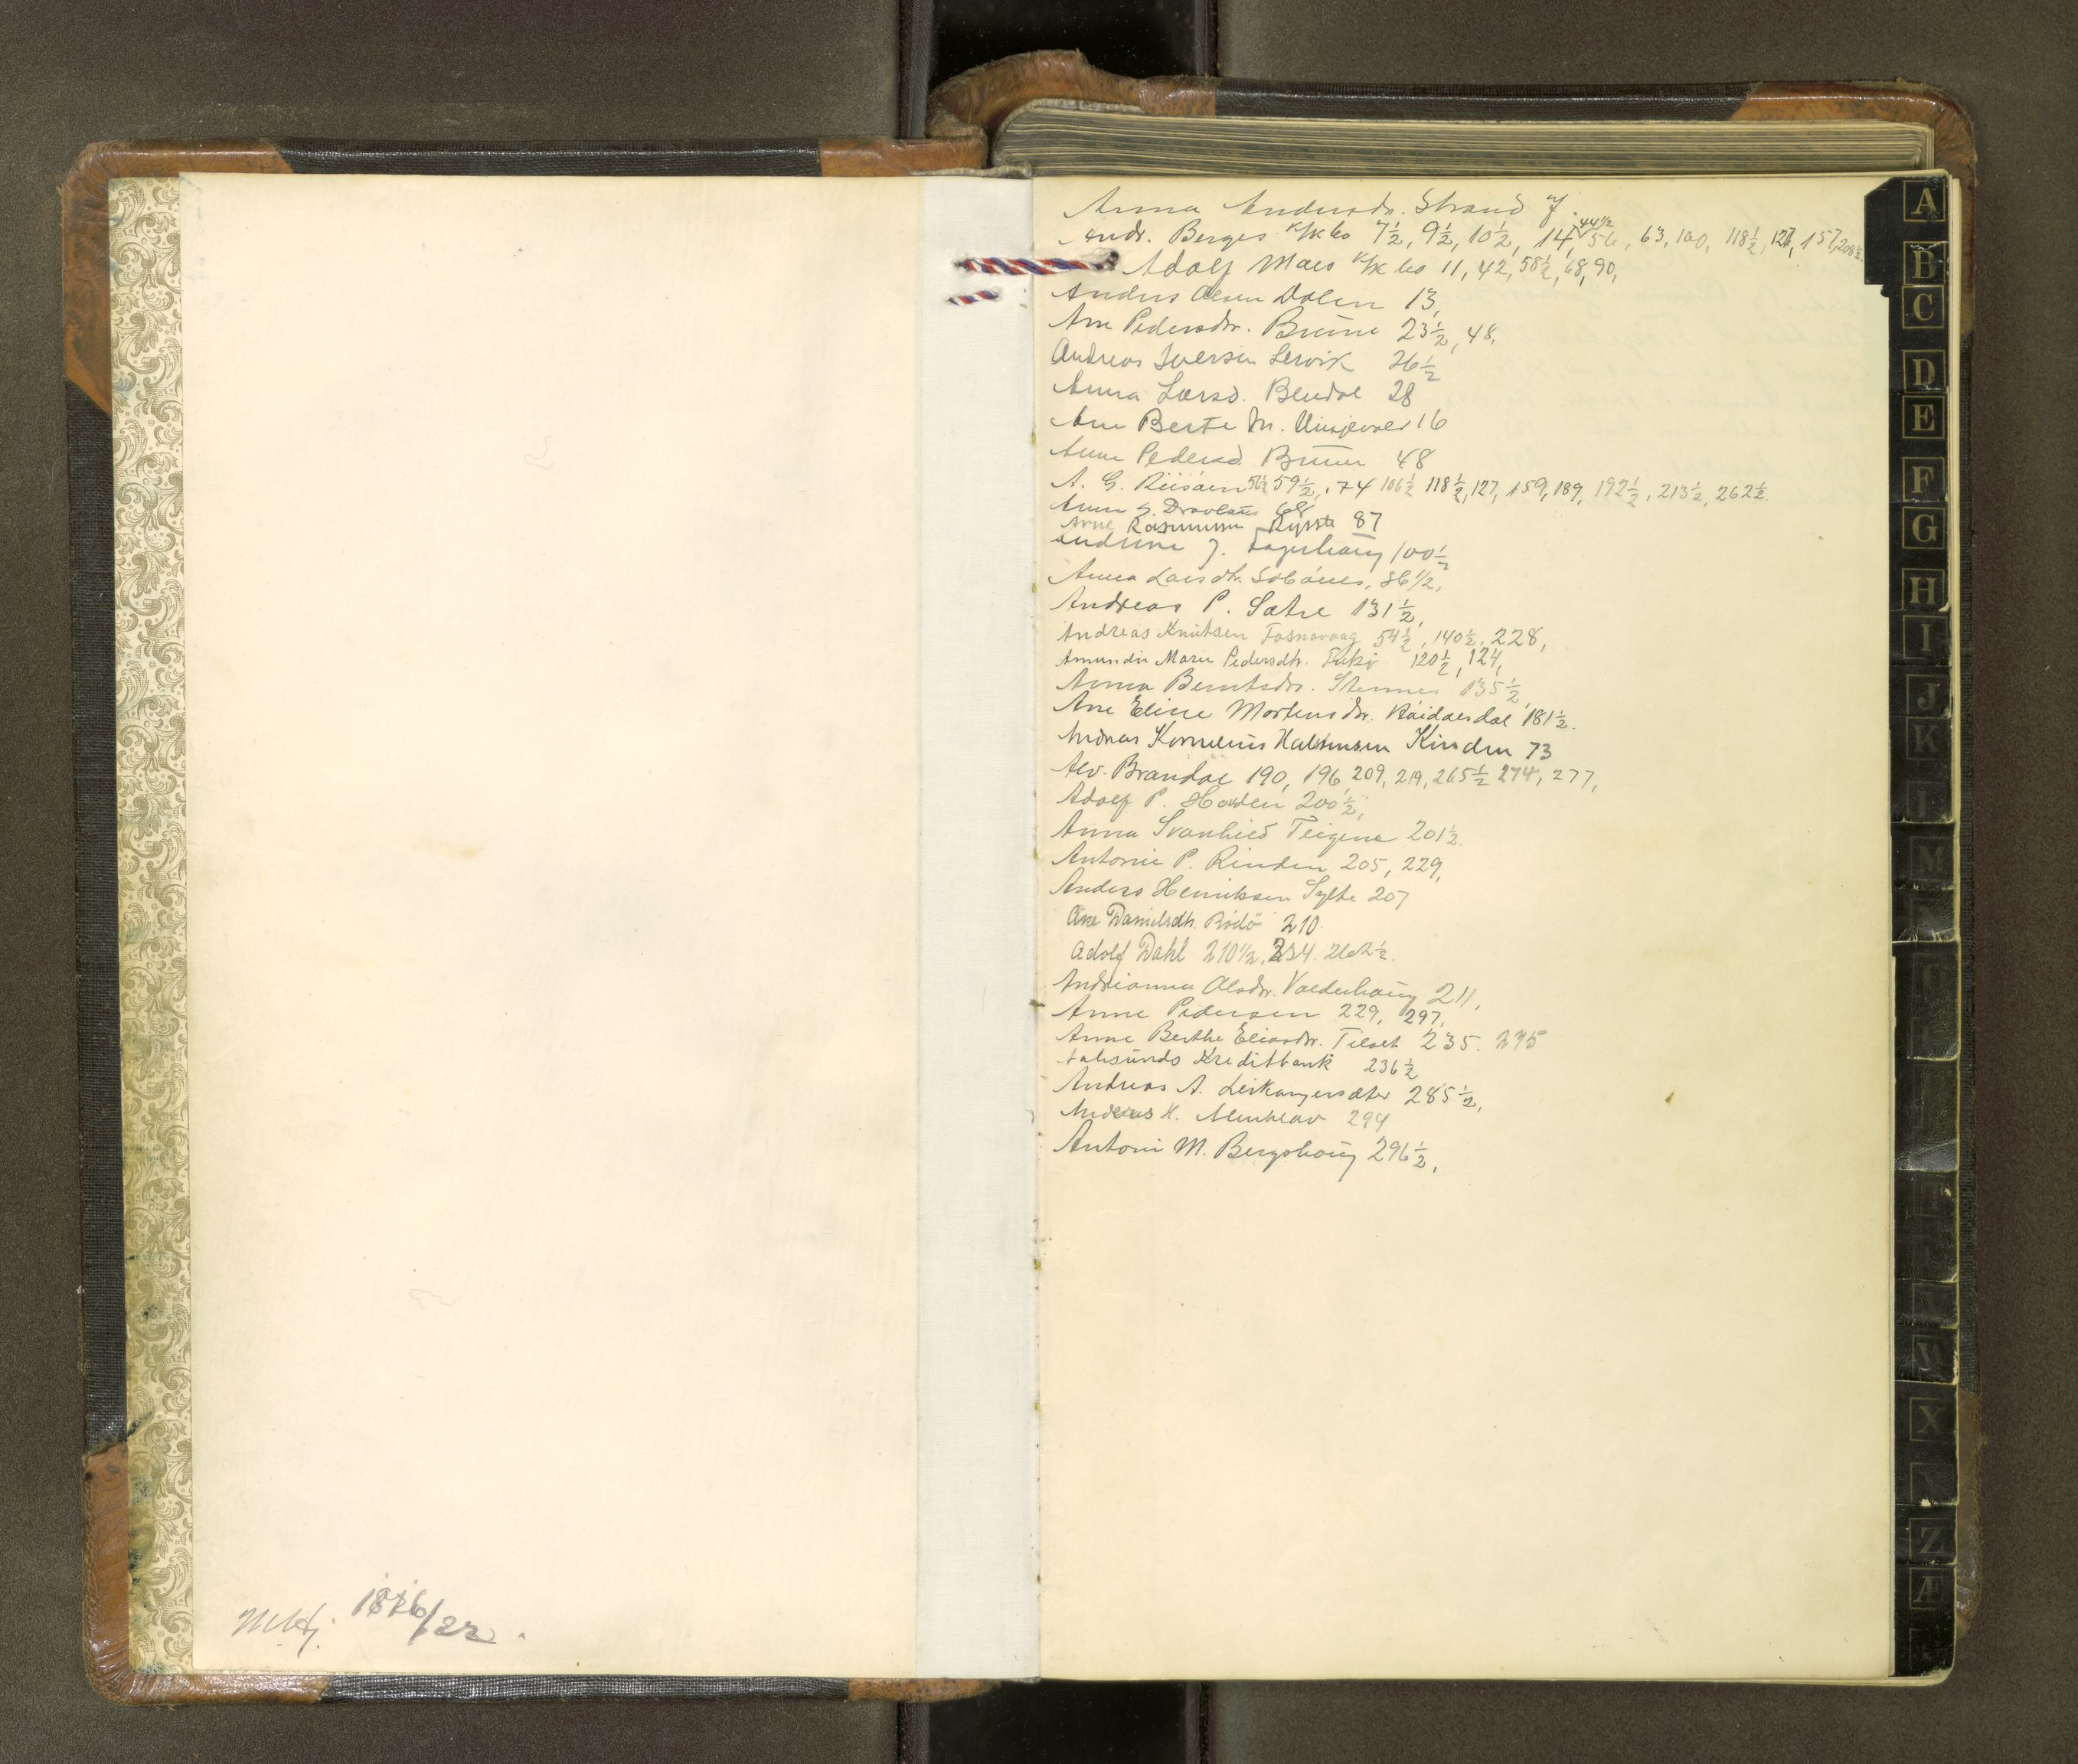 Anna Andersdr. Strand 7.
Andr. Berges K/K bo 7½, 9½, 10½, 14, 44½ 56, 63, 100, 118½, 126, 157, 208½.
Adolf Maes K/K bo 11, 42, 58½, 68, 90,
Anders Olsen Dalen 13,
Ane Pedersdr. Brune 23½, 48,
Andreas Iversen Lervik 26½
Anna Larsd. Bendal 28
Ane Berte M. 16
Anne Pedersd. Brune 48
A. G. 56½ 59½, 74 106½ 118½, 127, 159, 189, 192½, 213½, 262½.
Anne S. 68
Arne Rasmussen Rypste 87
Andrine J. Fagerhaug 100½
Anna Larsdtr. 86 1/2,
Andreas P. Sætre 131½,
Andreas Knutsen Fosnavaag 54½, 140½, 228,
Amundin Marie Pedersdtr. 120½, 124,
Anna Berntsdr. Stennes 135½,
Ane Eline Mortensdr. 181½.
Andreas Kornelius Kinden 73
Alv. Brandal 190, 196 209, 219, 265½ 274, 277,
Adolf P. Hovden 200½,
Anna Svanhild Teigene 201½.
Antonie P. Rinden 205, 229,
Anders Henriksen Sylte 207
Ane Danielsdtr. Rödö 210.
Adolf Dahl 210 1/2, 234. 262½.
Andrianna Olsdr. Valderhaug 211,
Anne Pedersen 229, 297,
Anne Berthe Eliasdr. Tilset 235. 275
Aalesunds Kreditbank 236½
Andreas A. Leikangersæter 285½,
Andreas K. Almklov 294
Antoni M. Bergshaug 296½,
1816/22.
A
B
C
D
E
F
G
H
I
J
K
L
M
O
W
X
Y
Z
Æ